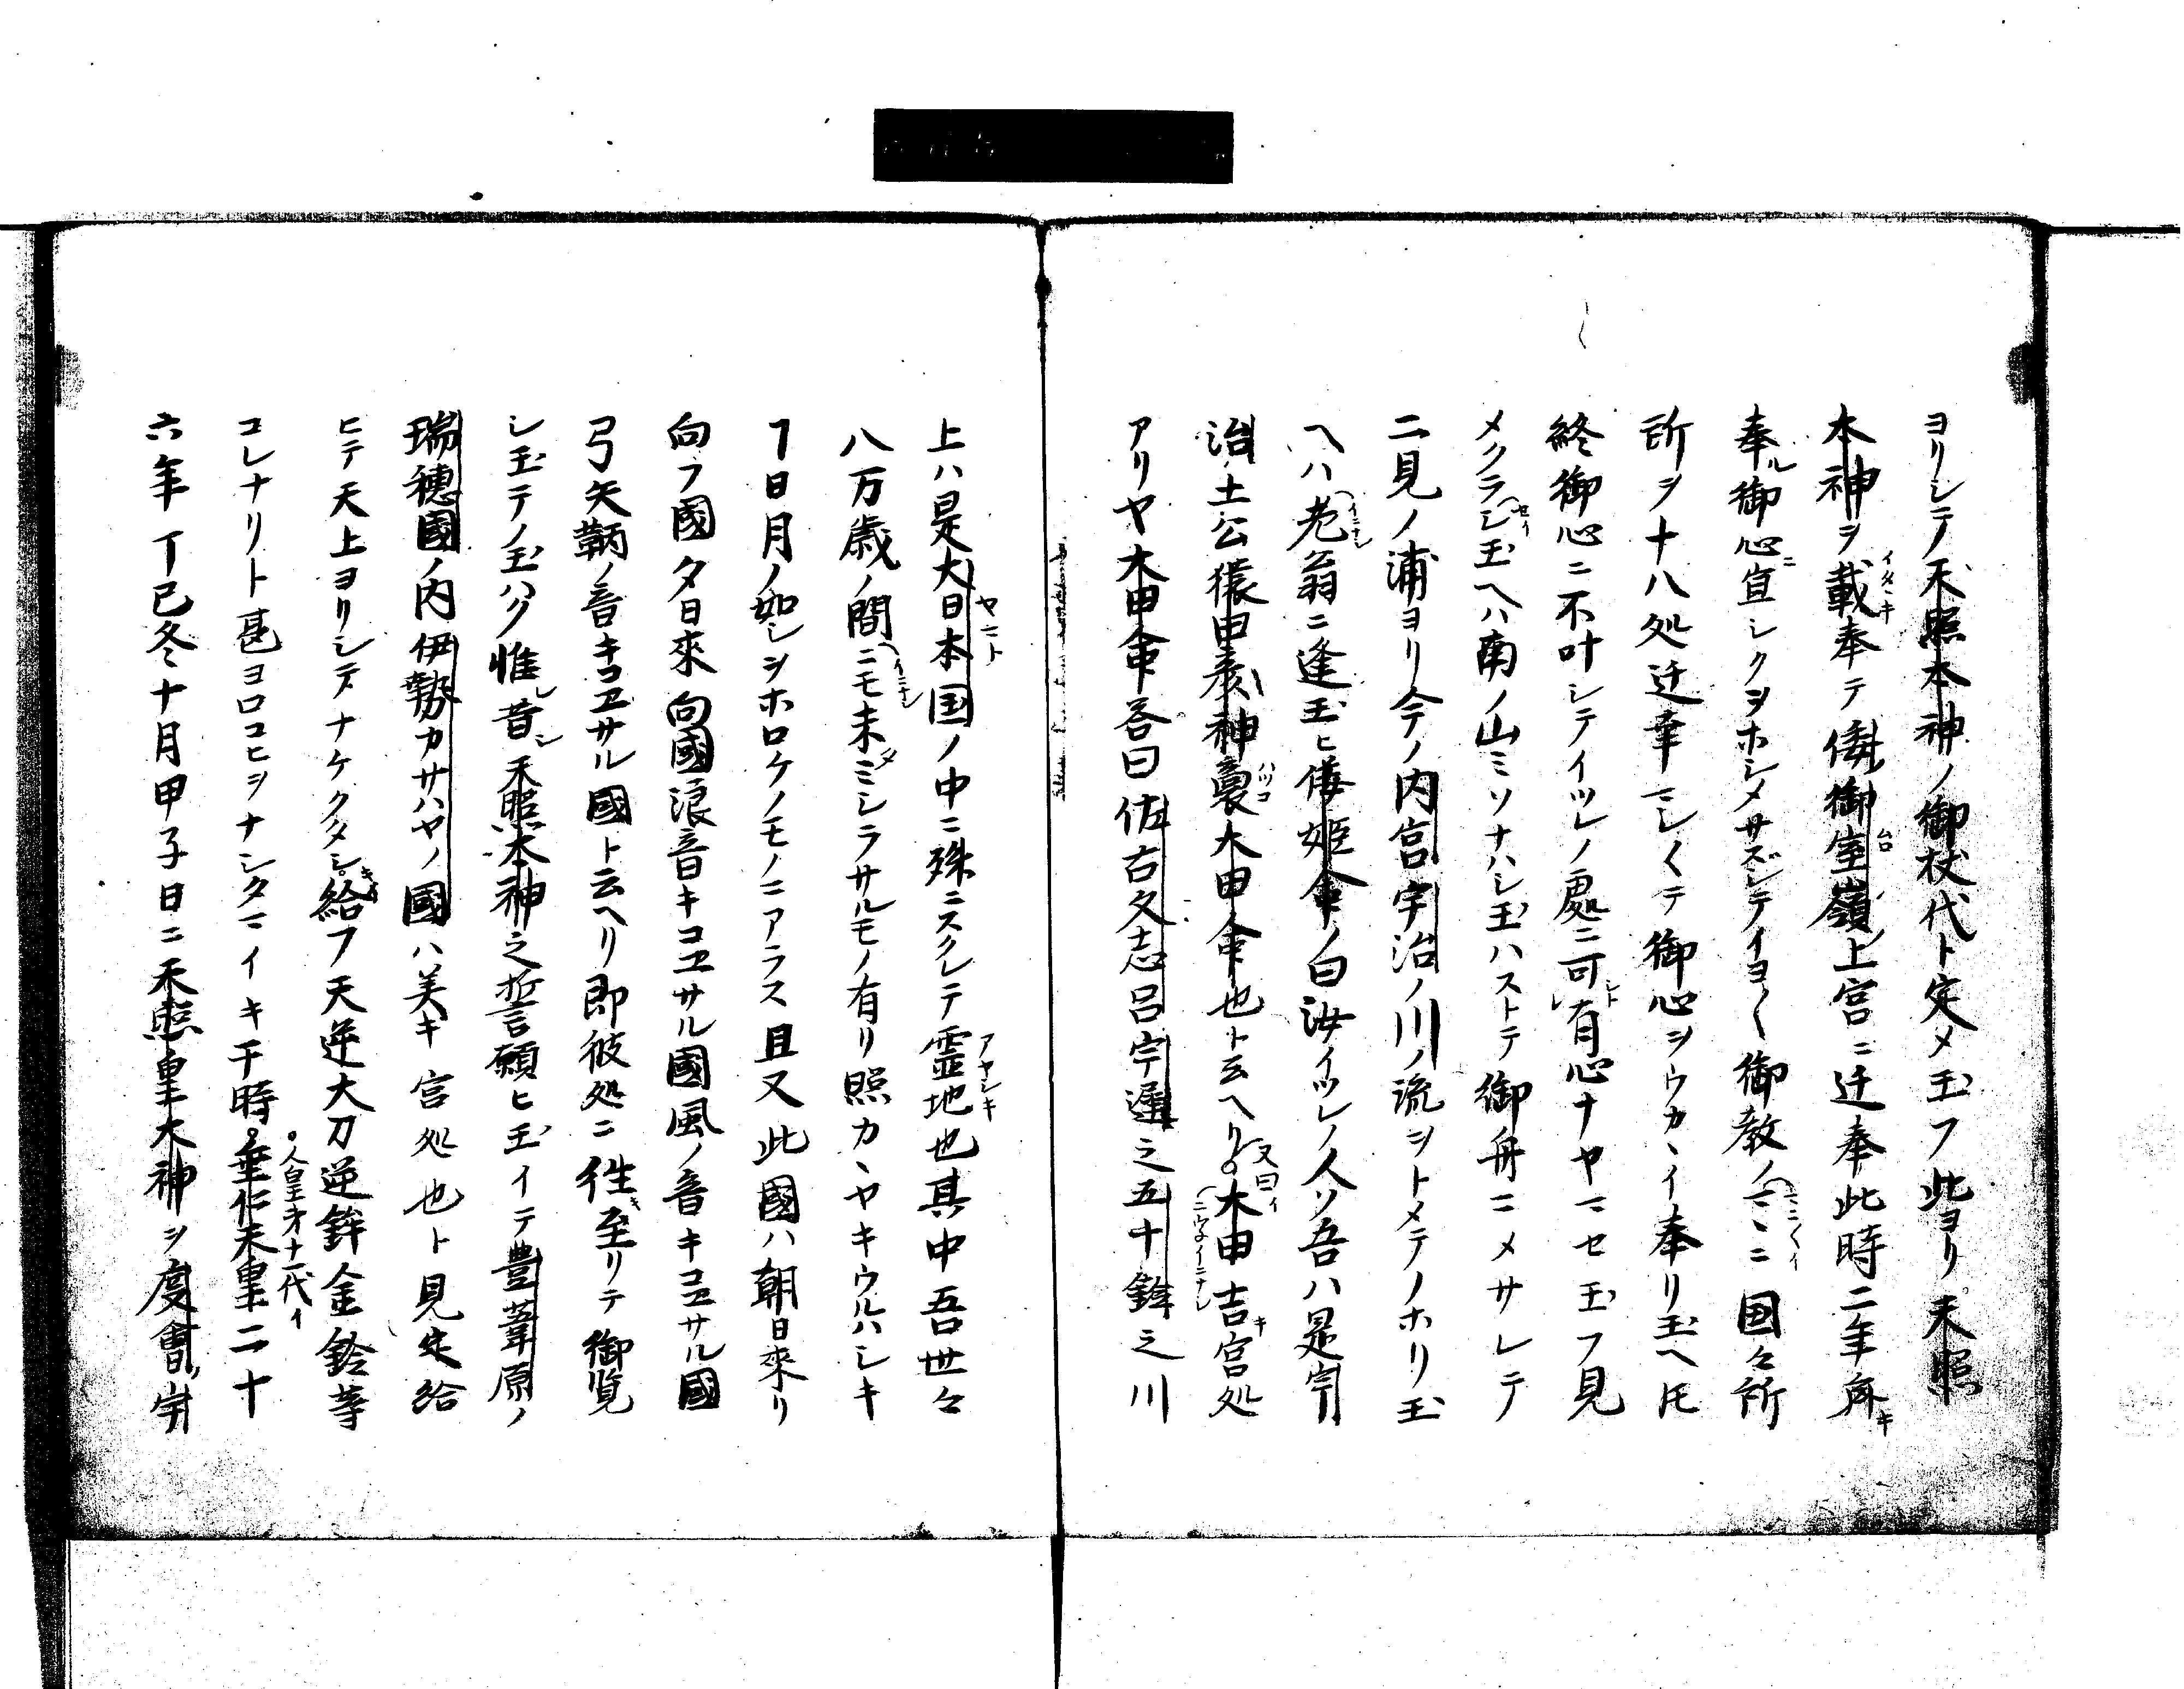 ヨリシテ天照本神ノ御杖代ト定メ玉フ此ヨリ天照
本神ヲ載奉テ倭ノ御室嶺ノ上宮ニ迁奉此時二年齋
奉ル御心宜シクヲホシメサズシテイヨ〱御教ノマヽニ国々所
所ヲ十八処迁幸マシ〱テ御心ヲウカヽイ奉リ玉ヘ𪜈
終御心ニ不叶シテイツレノ處ニ可有心ナヤマセ玉フ見
メクラシ玉ヘハ南ノ山ミソナハシ玉ハストテ御舟ニメサレテ
二見ノ浦ヨリ今ノ内宮宇治ノ川ノ流ヲトメテノホリ玉
ヘハ老翁ニ逢玉ヒ倭姫命ノ曰汝イツレノ人ソ吾ハ是宇
治土公猿田彦神裔大田命也ト云ヘリ大田吉宮処
アリヤ大田命答曰佐古久志呂宇遲之五十鈴之川
上ハ是大日本国ノ中ニ殊ニスクレテ霊地也其中吾世々
八万歳ノ間ニモ未ミシラサルモノ有リ照カヽヤキウルハシキ
ヿ日月ノ如シヲホロケノモノニアラス且又此國ハ朝日來リ
向フ國夕日來向國浪音キコヱサル國風ノ音キコヱサル國
弓矢鞆ノ音キコヱサル國ト云ヘリ即彼処ニ徃至リテ御覧
シ玉テノ玉ハク惟昔天照大神之誓願ヒ玉イテ豊葦原ノ
瑞穂國ノ内伊勢カサハヤノ國ハ美キ宮処也ト見定給
ヒテ天上ヨリシテナケクタシ給フ天逆大刀逆鉾金鈴等
コレナリト甚ヨロコヒヲナシタマイキ于時垂仁天皇二十
六年丁巳冬十月甲子日ニ天照皇大神ヲ度會ノ宇